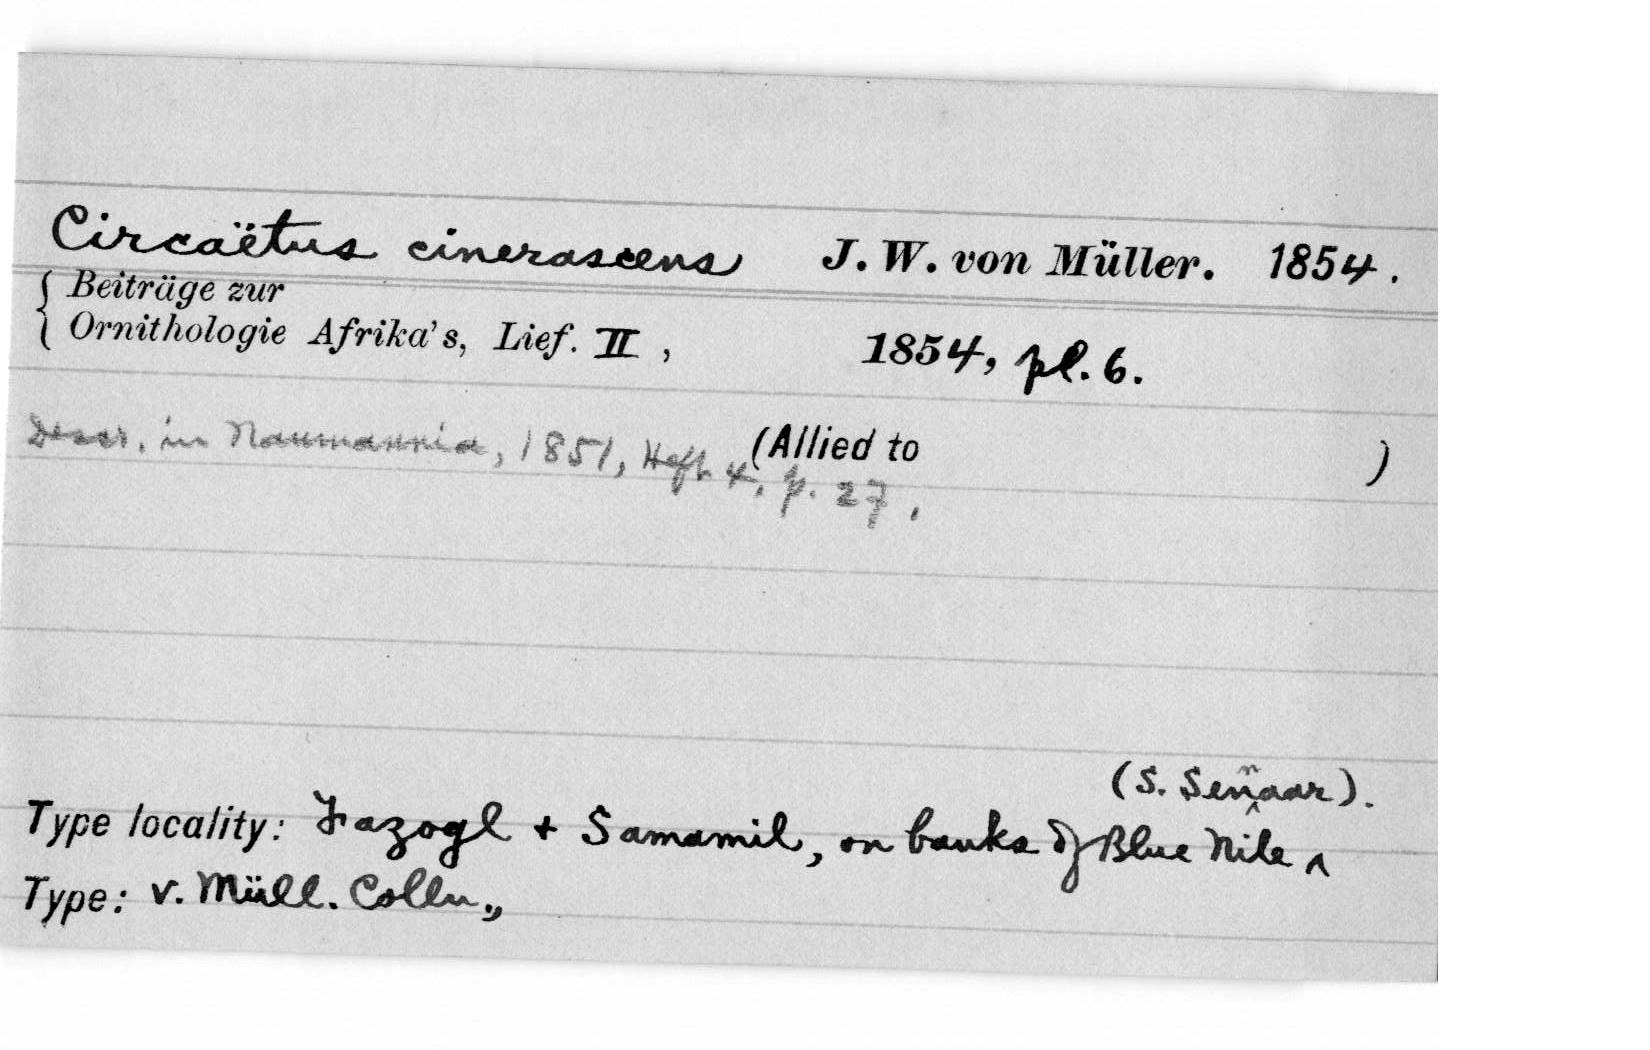 Circaëtus cinerascens J. W. von Müller. 1854.
{ Beiträge zur
Ornithologie Afrika's, Lief. II, 1854, pl. 6.
Descr. in Naumannia, 1851, Heft 4, p. 27.
(Allied to )
(S. Sennaar).
Type locality: Fazogl + Samamil, on banks of Blue Nile ^
Type: v. Müll. Colln.,